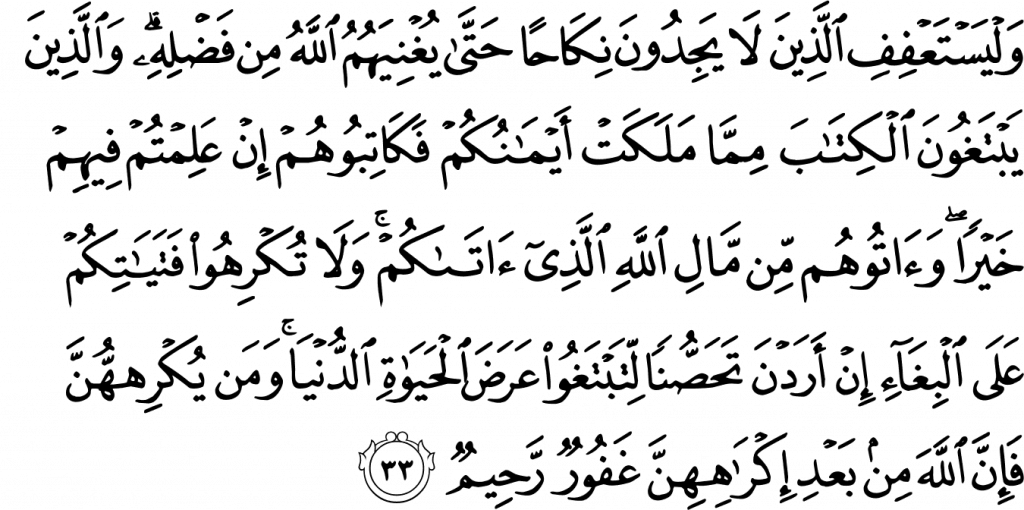 وَلْيَسْتَعْفِفِ ٱلَّذِينَ لَا يَجِدُونَ نِكَاحًا حَتَّىٰ يُغْنِيَهُمُ ٱللَّهُ مِن فَضْلِهِۦ ۗ وَٱلَّذِينَ
يَبْتَغُونَ ٱلْكِتَـٰبَ مِمَّا مَلَكَتْ أَيْمَـٰنُكُمْ فَكَاتِبُوهُمْ إِنْ عَلِمْتُمْ فِيهِمْ
خَيْرًا ۖ وَءَاتُوهُم مِّن مَّالِ ٱللَّهِ ٱلَّذِىٓ ءَاتَىٰكُمْ ۚ وَلَا تُكْرِهُوا۟ فَتَيَـٰتِكُمْ
عَلَى ٱلْبِغَآءِ إِنْ أَرَدْنَ تَحَصُّنًا لِّتَبْتَغُوا۟ عَرَضَ ٱلْحَيَوٰةِ ٱلدُّنْيَا ۚ وَمَن يُكْرِههُّنَّ
فَإِنَّ ٱللَّهَ مِنۢ بَعْدِ إِكْرَٰهِهِنَّ غَفُورٌ رَّحِيمٌ ٣٣